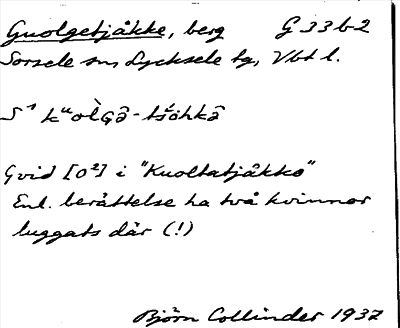 Guolgetjåkke, berg G 33 b 2
Sorsele sn, Lycksele tg, Vbt l.
S¹ kᵘòlGâ-tśåhkâ
Gvid [o²] i "Kuoltatjåkko"
Enl. berättelse ha två kvinnor
luggats där (!)
Björn Collinder 1937